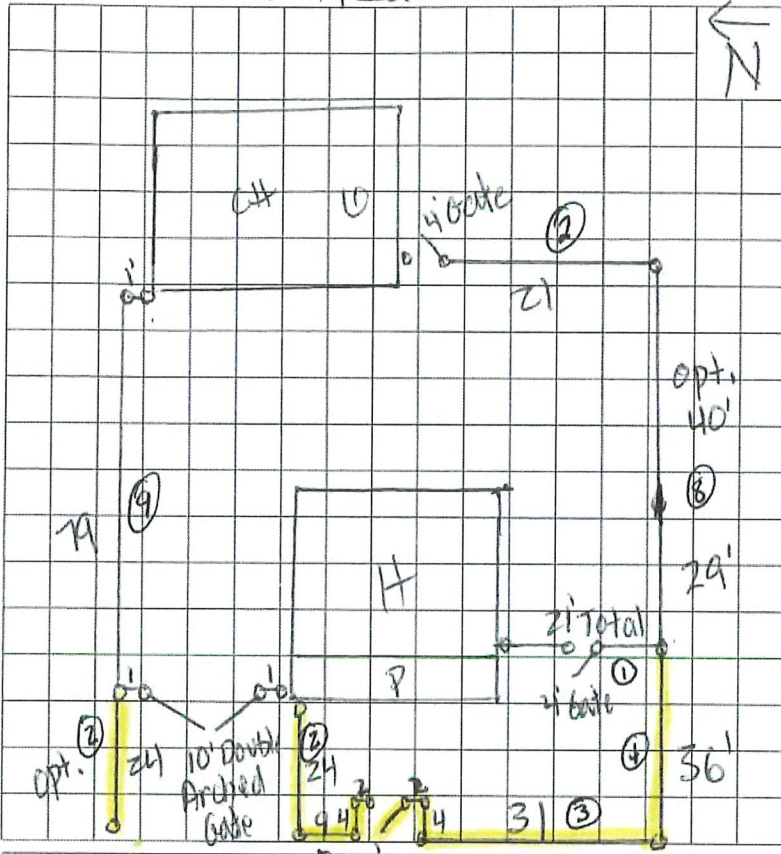 N
GH
4' Gate
②
1'
21
opt.
40'
⑧
79
⑨
H
29'
21' Total
P
①
4' Gate
1
1
opt. ②
24
10' Double
Arched
Gate
②
24
④
36'
9
4
2
2
4
31
③